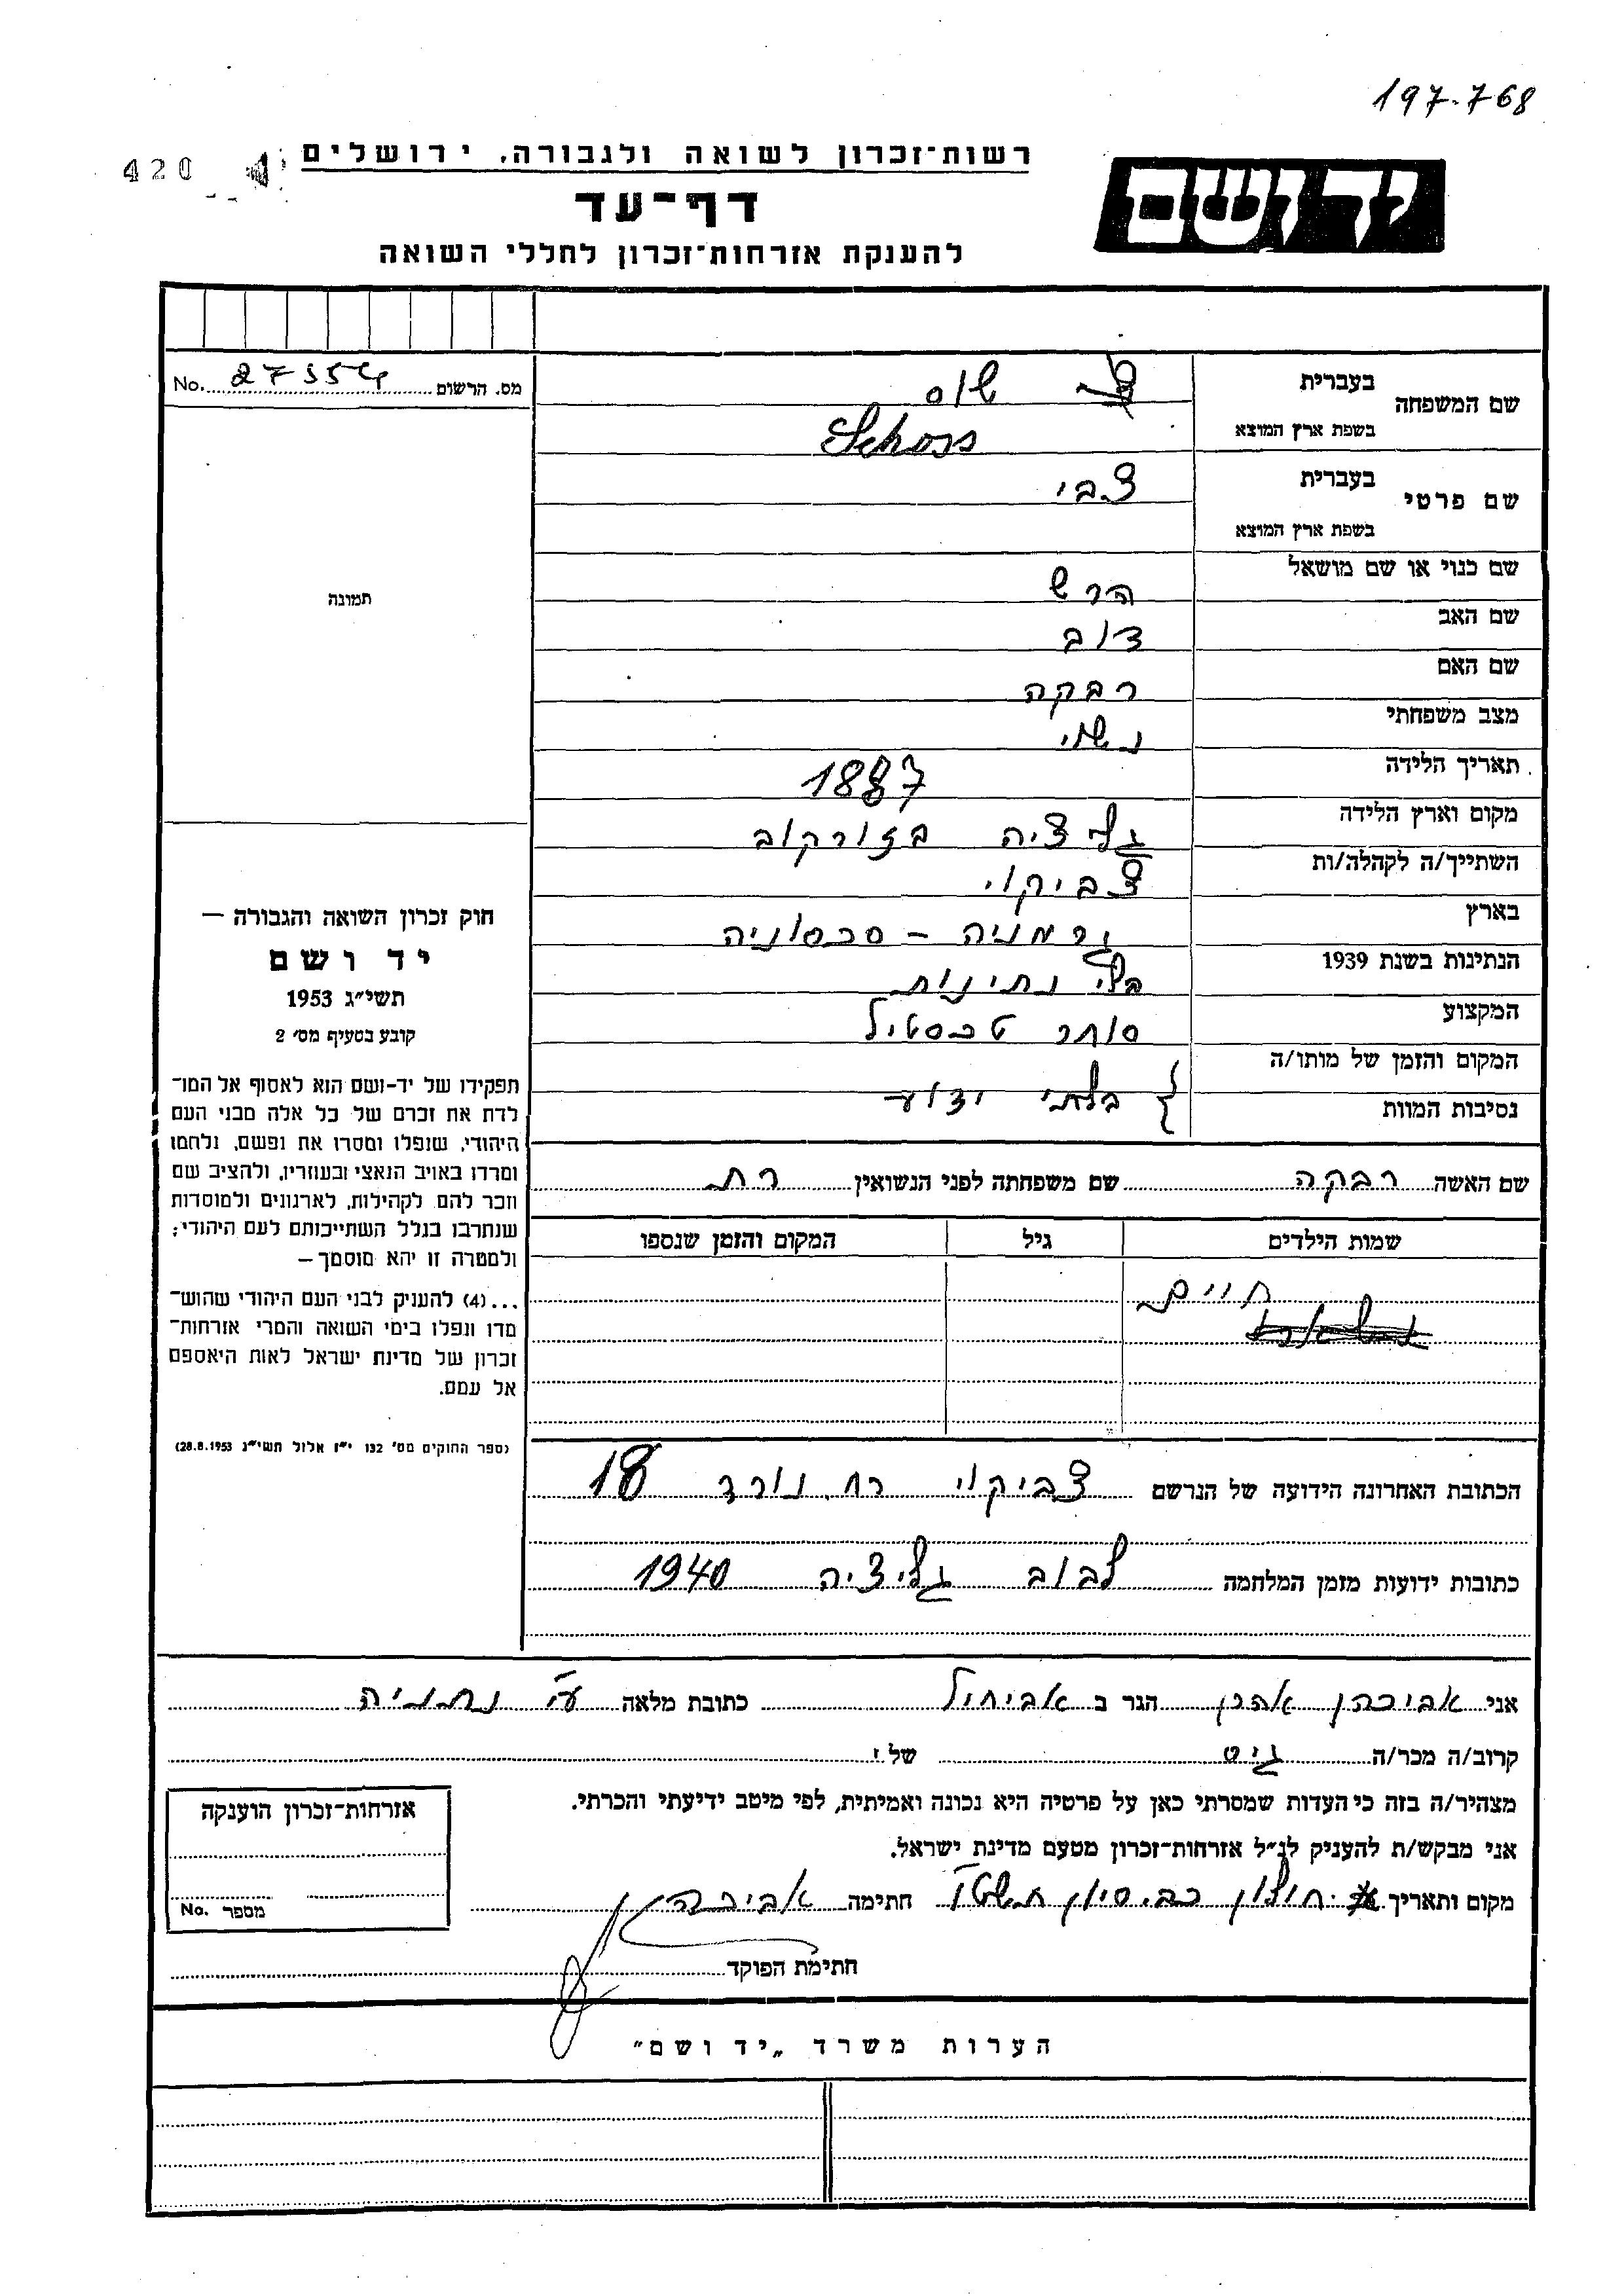 197.768
420
רשות־זכרון לשואה ולגבורה, ירושלים
יד ושם
דף־עד
להענקת אזרחות־זכרון לחללי השואה
מס. הרשום 27354 No.
שם המשפחה בעברית שוס
בשפת ארץ המוצא Schoss
שם פרטי בעברית צבי
בשפת ארץ המוצא
שם כנוי או שם מושאל הרש
תמונה
שם האב דוב
שם האם רבקה
מצב משפחתי נשוי
תאריך הלידה 1887
מקום וארץ הלידה גליציה
השתייך/ה לקהלה/ות צביקוי
בארץ גרמניה - סכסוניה
הנתינות בשנת 1939 בלי נתינות
המקצוע סוחר טכסטיל
המקום והזמן של מותו/ה
נסיבות המוות } בלתי ידוע
חוק זכרון השואה והגבורה —
יד ושם
תשי״ג 1953
קובע בסעיף מס׳ 2
תפקידו של יד-ושם הוא לאסוף אל המו־
לדת את זכרם של כל אלה מבני העם
היהודי, שנפלו ומסרו את נפשם, נלחמו
ומרדו באויב הנאצי ובעוזריו, ולהציב שם
וזכר להם לקהילות, לארגונים ולמוסדות
שנחרבו בגלל השתייכותם לעם היהודי;
ולמטרה זו יהא מוסמך —
...(4) להעניק לבני העם היהודי שהוש־
מדו ונפלו בימי השואה והמרי אזרחות־
זכרון של מדינת ישראל לאות היאספם
אל עמם.
(ספר החוקים מס׳ 132 י״ז אלול תשי״ג 28.8.1953)
שם האשה רבקה שם משפחתה לפני הנשואין רת
שמות הילדים גיל המקום והזמן שנספו
חיים
הכתובת האחרונה הידועה של הנרשם צביקוי רח. נורד 18
כתובות ידועות מזמן המלחמה לבוב גליציה 1940
אני אבירהן אהרן הגר ב אביחיל כתובת מלאה ע״י נתניה
קרוב/ה מכר/ה גיס של:
מצהיר/ה בזה כי העדות שמסרתי כאן על פרטיה היא נכונה ואמיתית, לפי מיטב ידיעתי והכרתי.
אני מבקש/ת להעניק לנ״ל אזרחות־זכרון מטעם מדינת ישראל.
מקום ותאריך חולון כב. סיון תשט״ו חתימה
חתימת הפוקד
אזרחות־זכרון הוענקה
מספר No.
הערות משרד „יד ושם״